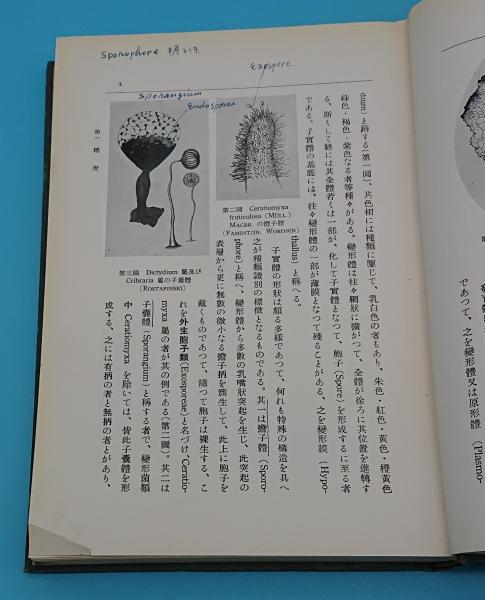 Sporophore 擔子体
Exospore.
Sporangium
Endospores
3
第一 總説
第二圖 Ceratiomyxa
fruticulosa (MÜLL.)
MACBR. の擔子體
(FAMINTZIN, WORONIN)
第三圖 Dictydium 屬及び
Cribraria 屬の子囊體
(ROSTAFINSKI)
dium) と稱する(第一圖)、其色相には種類に應じて、乳白色の者もあり、朱色・紅色・黃色・橙黃色
綠色・褐色・紫色なる者等種々がある。變形體は往々網狀に擴がつて、全體が徐ろに其位置を進轉す
る、斯くして終には其全體若くは一部が、化して子實體となつて、胞子(Spore)を形成するに至る者
である。子實體の基底には、往々變形體の一部が薄膜となつて殘ることがある、之を變形膜 (Hypo-
thallus) と稱へる。
子實體の形狀は頗る多樣であつて、何れも特殊の構造を具へ
之が種類識別の標徵となるものである。其一は擔子體 (Sporo-
phore) と稱へ、變形體から多數の乳嘴狀突起を生じ、此突起の
表層から更に無數の微小なる擔子柄を簇生して、此上に胞子を
戴くものであつて、隨つて胞子は裸生する、こ
れを外生胞子類(Exosporeae)と名づけ、Ceratio-
myxa 屬の者が其の例である(第二圖)。其二は
子囊體(Sporangium)と稱する者で、變形菌類
中 Ceratiomyxa を除いては、皆此子囊體を形
成する、之には有柄の者と無柄の者とがあり、
であつて、之を變形體又は原形
(Plasmo-